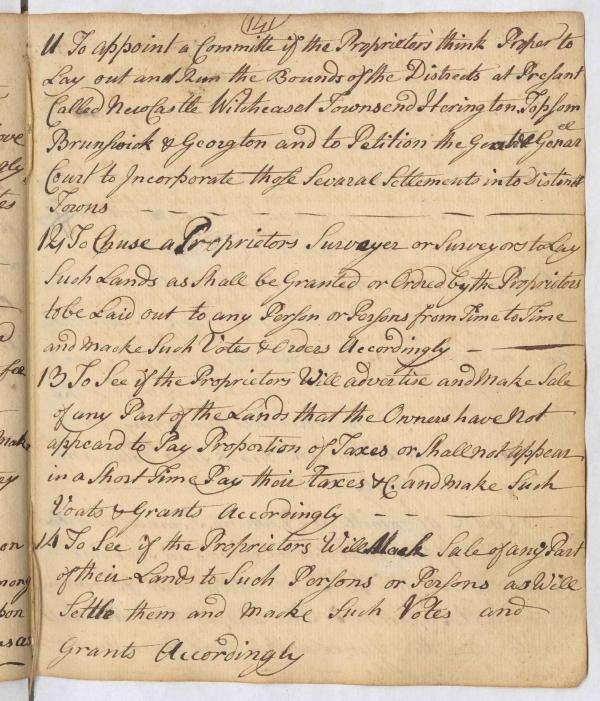 141
11 To appoint a Committe if the Proprietors think Proper to
Lay out and Run the Bounds of the Districts at Presant
Called NewCastle Witcheaset Townsend Herington Topsom
Brunswick & Georgton and to Petition the Genaral
Court to Incorporate those Sevaral Settlements into Distinct
Towns
12 To Chuse a Proprietors Surveyer or Surveyors to Lay
Such Lands as Shall be Granted or Ordred by the Proprietors
to be Laid out to any Person or Persons from Time to Time
and macke Such Votes & Orders Accordingly
13 To See if the Proprietors Will advertise and Make Sale
of any Part of the Lands that the Owners have Not
appeard to Pay Proportion of Taxes or Shall not appear
in a Short Time Pay their Taxes &C. and make Such
Voats & Grants Accordingly
14 To See if the Proprietors Will Mack Sale of any Part
of their Lands to Such Persons or Persons as Will
Settle them and macke Such Votes and
Grants Accordingly